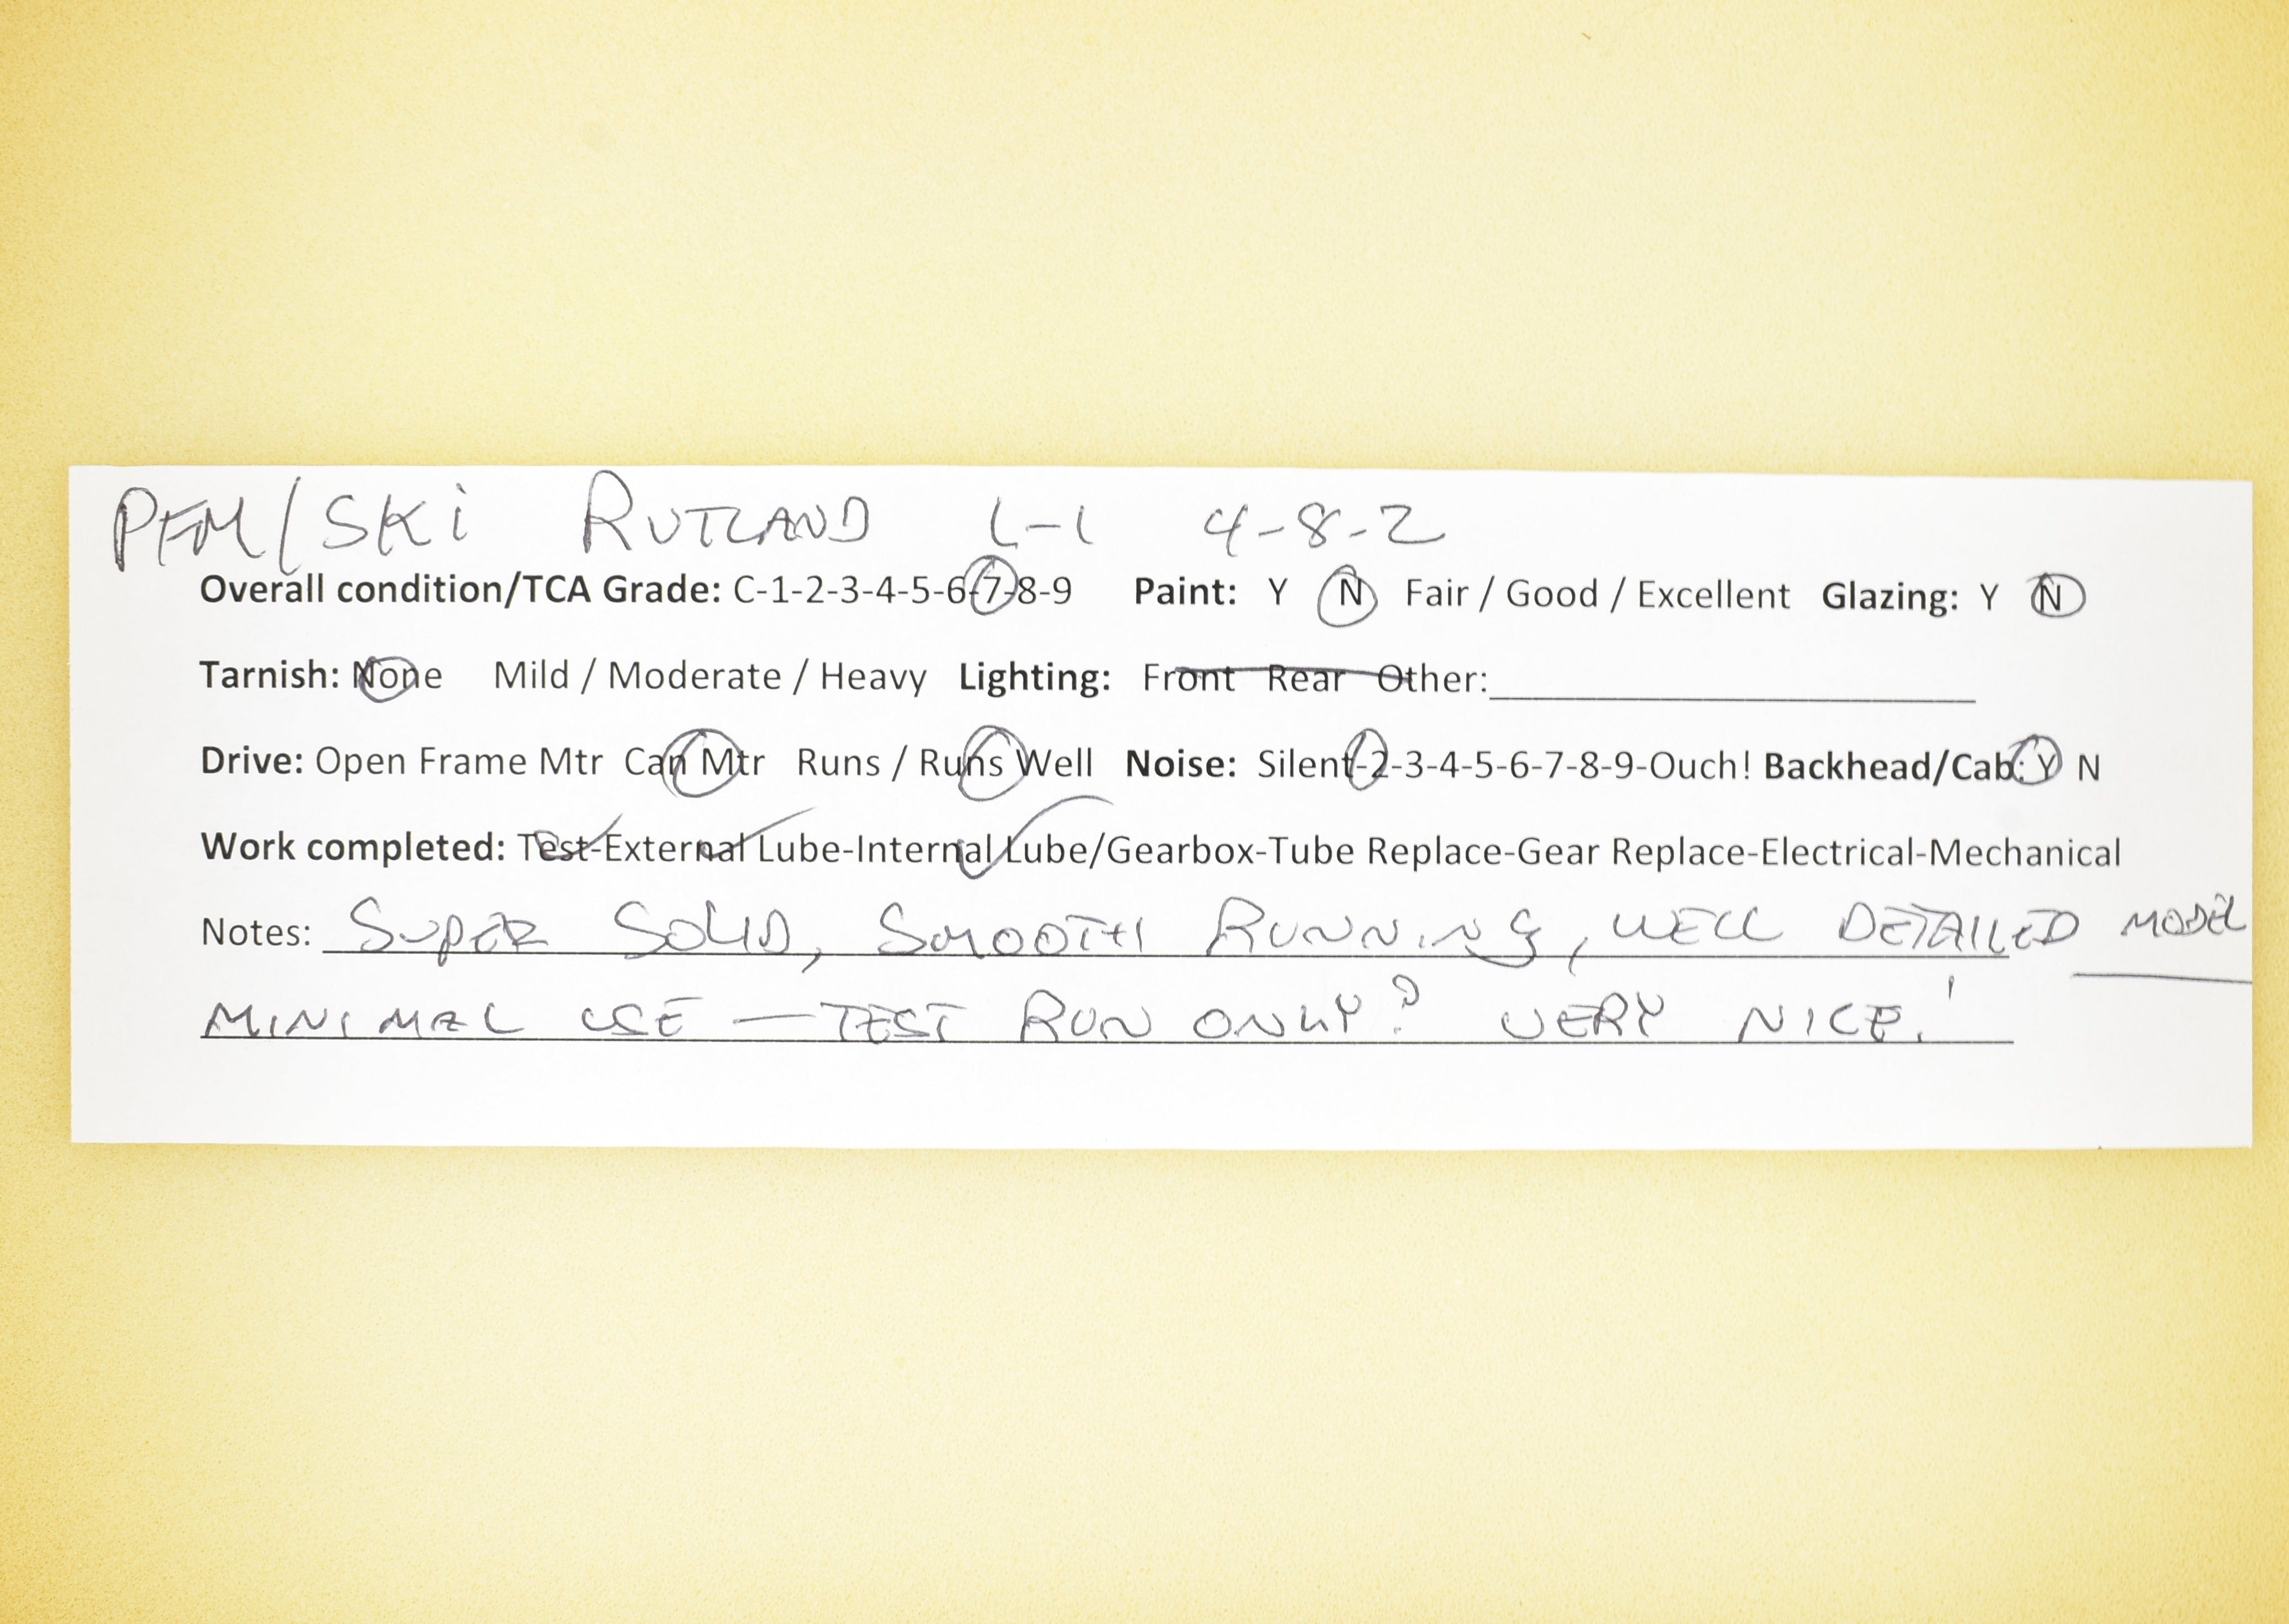 PFM/SKi RUTLAND L-1 4-8-2
Overall condition/TCA Grade: C-1-2-3-4-5-6-7-8-9 Paint: Y N Fair / Good / Excellent Glazing: Y N
Tarnish: None Mild / Moderate / Heavy Lighting: Front Rear Other:
Drive: Open Frame Mtr Can Mtr Runs / Runs Well Noise: Silent-2-3-4-5-6-7-8-9-Ouch! Backhead/Cab: Y N
Work completed: Test-External Lube-Internal Lube/Gearbox-Tube Replace-Gear Replace-Electrical-Mechanical
Notes: SUPER SOLID, SMOOTH RUNNING, WELL DETAILED MODEL
MINIMAL USE — TEST RUN ONLY? VERY NICE!